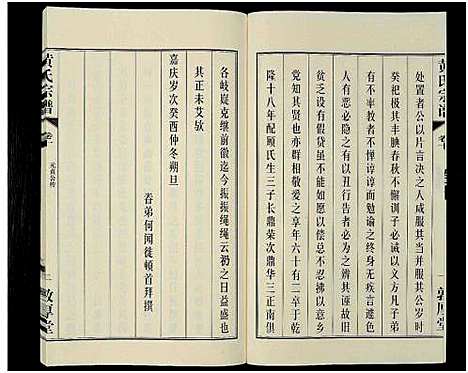 黄氏宗谱
卷十
一
敦厚堂
处置者公以片言决之人咸服其公并服其公岁时
癸祀极其丰腆春秋不懈训子必诫以义方凡子弟
有不率教者谆谆而勉谕之终身无疾言遽色里有
贫乏之没有假贷虽不能如愿以偿总不忍拒意乡
党知其贤也亦群相爱敬享年六十有三卒于乾
隆十八年配顾氏生三子长鼎荣次鼎华三正南俱
各岐嶷克继前徽迄今振振绳绳云礽之日益盛也
其正未艾欤
嘉庆岁次癸酉仲冬朔旦
眷弟何闻徒顿首拜撰
黄氏宗谱
卷十
元贞公传
二
敦厚堂